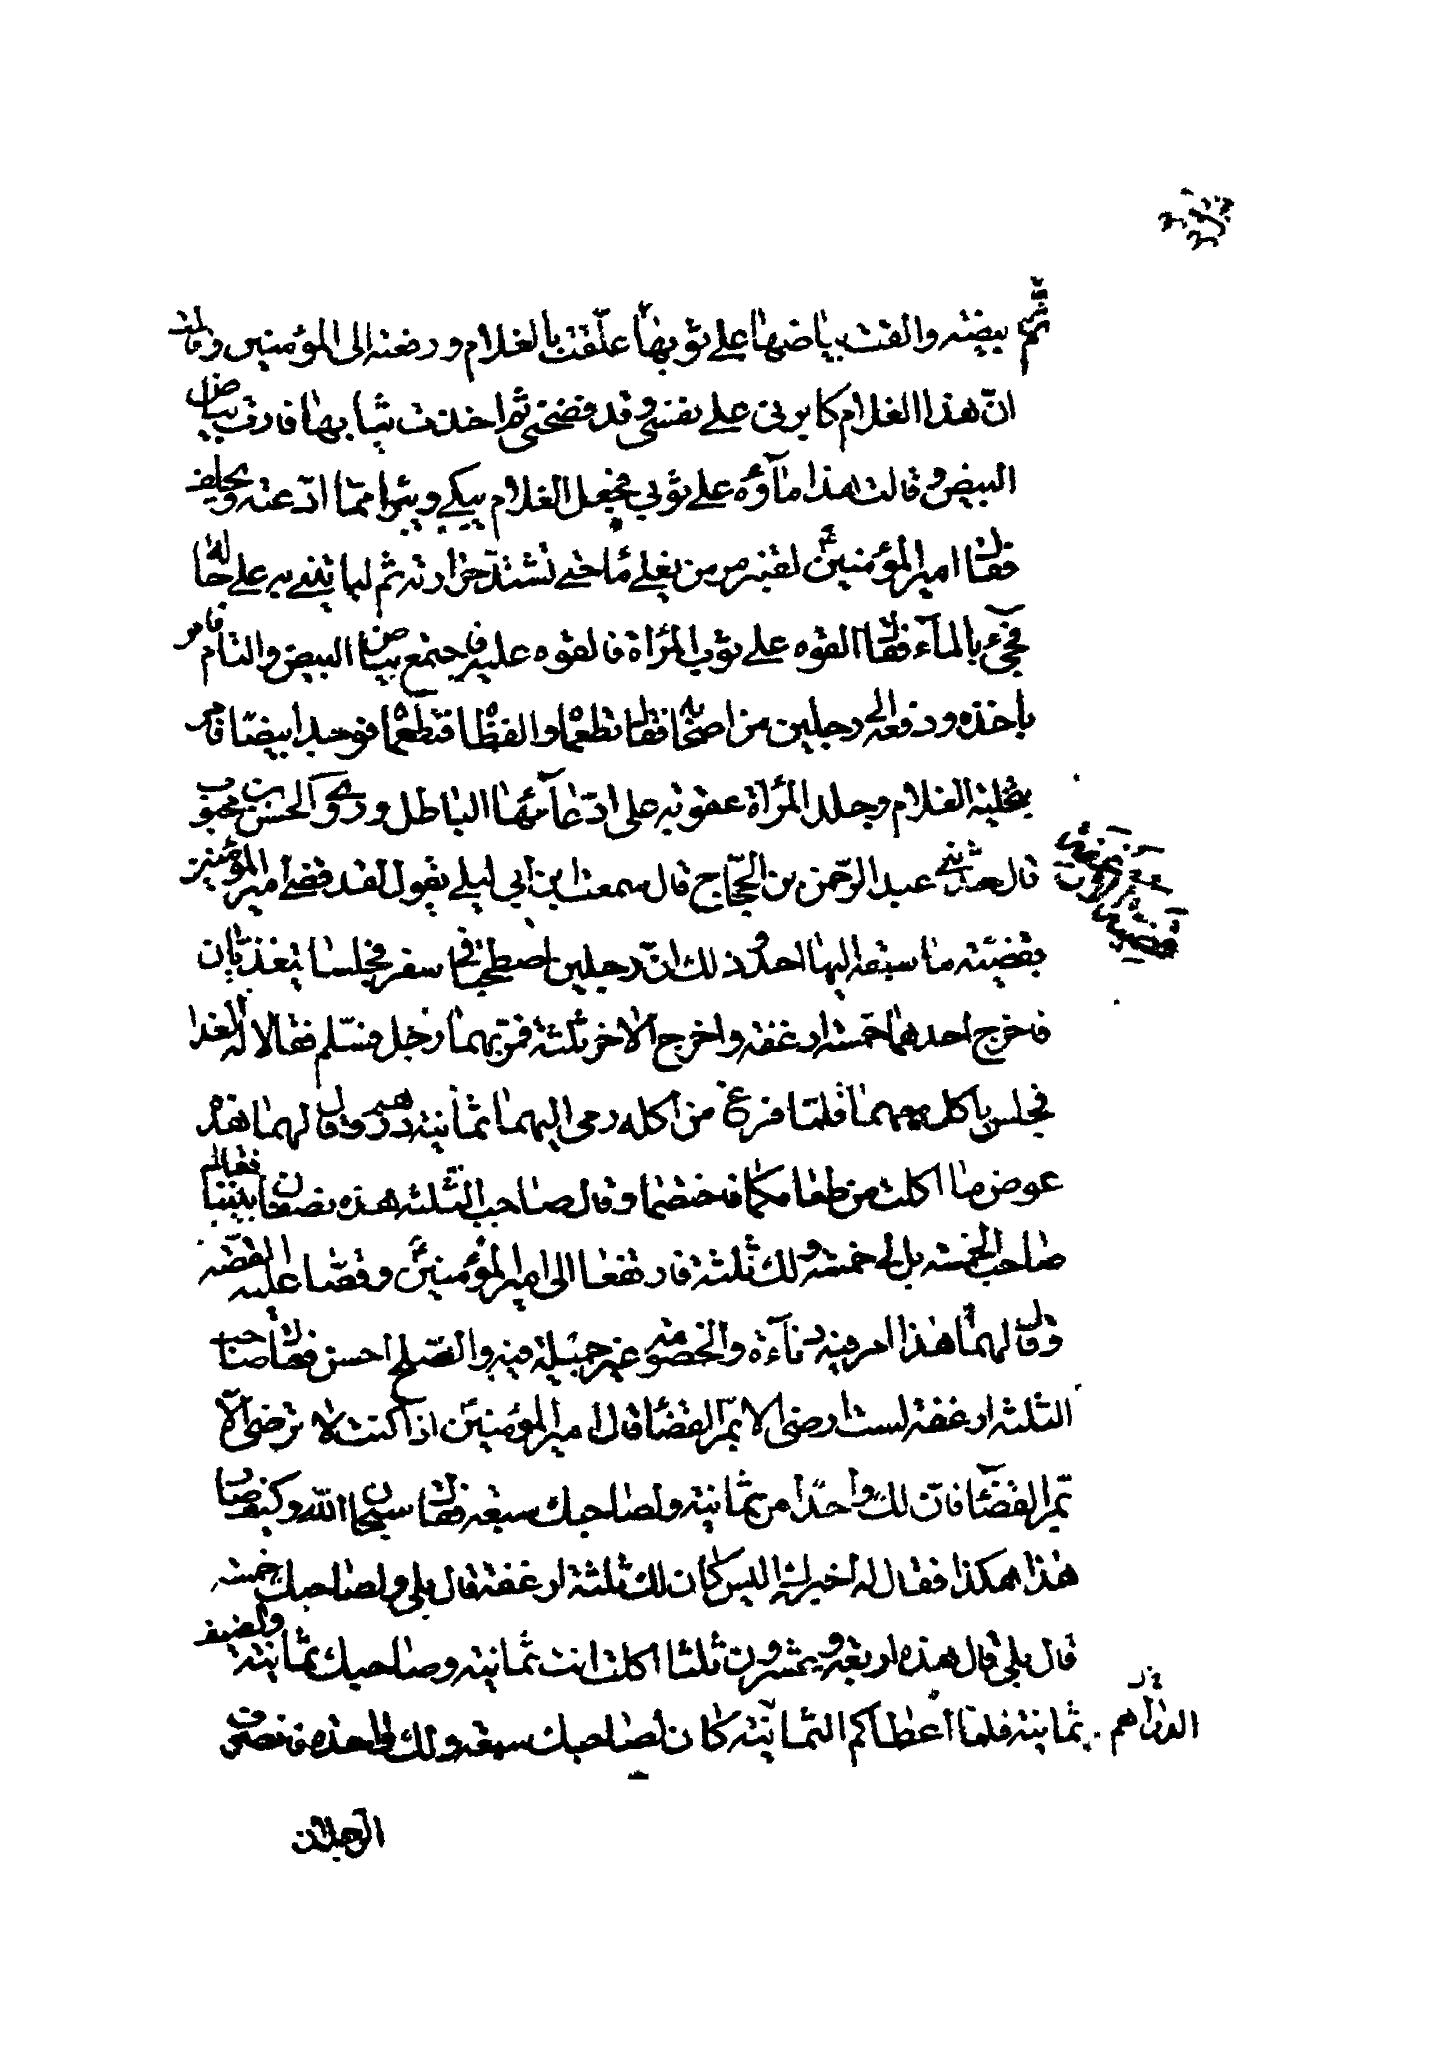 ثم بيضته والقت بياضها على ثوبها علّقت بالغلام ورفعته الى امير المؤمنين وقالت
انّ هذا الغلام كابرنى على نفسى وقد فضحنى ثم اخذت ثيابها فارت بياض
البيض وقالت هذا ماؤه على ثوبي فجعل الغلام يبكي ويبرأ ممّا ادّعته ويحلف
فقال امير المؤمنين لقنبر مر من يغلى ماء حتى تشتدّ حرارته ثم لياتينى به على حاله
فجيء بالماء فقال القوه على ثوب المرأة فالقوه عليه فاجتمع بياض البيض والتأم فامر
باخذه ودفعه الى رجلين من اصحابه فقال تطعماه والفظاه فتطعماه فوجداه بيضًا فامر
بتخلية الغلام وجلد المرأة عقوبة على ادّعائها الباطل وروى الحسن بن محبوب
قال حدّثني عبد الرّحمن بن الحجّاج قال سمعت ابن ابي ليلى يقول لقد قضى امير المؤمنين
بقضيّة ما سبقه اليها احد وذلك انّ رجلين اصطحبا في سفر فجلسا يتغذّيان
فاخرج احدهما خمسة ارغفة واخرج الآخر ثلثة فمرّ بهما رجل فسلّم فقالا له الغدا
فجلس ياكل معهما فلمّا فرغ من اكله رمى اليهما ثمانية دراهم وقال لهما هذه
عوض ما اكلت من طعامكما فاختصما وقال صاحب الثّلثة هذه نصفان بيننا فقال
صاحب الخمسة بل لي خمسة ولك ثلثة فارتفعا الى امير المؤمنين وقصّا عليه القصّة
وقال لهما هذا امر فيه دناءة والخصومة غير جميلة فيه والصّلح احسن فقال صاحب
الثلثة ارغفة لست ارضى الا بمرّ القضاء قال امير المؤمنين اذا كنت لا ترضى الا
بمرّ القضاء فانّ لك واحدًا من ثمانية ولصاحبك سبعة فقال سبحان الله وكيف صار
هذا هكذا فقال له اخبرك اليس كان لك ثلثة ارغفة قال بلى ولصاحبك خمسة
قال بلى قال هذه اربعة وعشرون ثلثا اكلت انت ثمانية وصاحبك ثمانية والضيف
ثمانية فلمّا اعطاكم الثمانية الدراهم كان لصاحبك سبعة ولك واحدة فانصرف
الرجلان